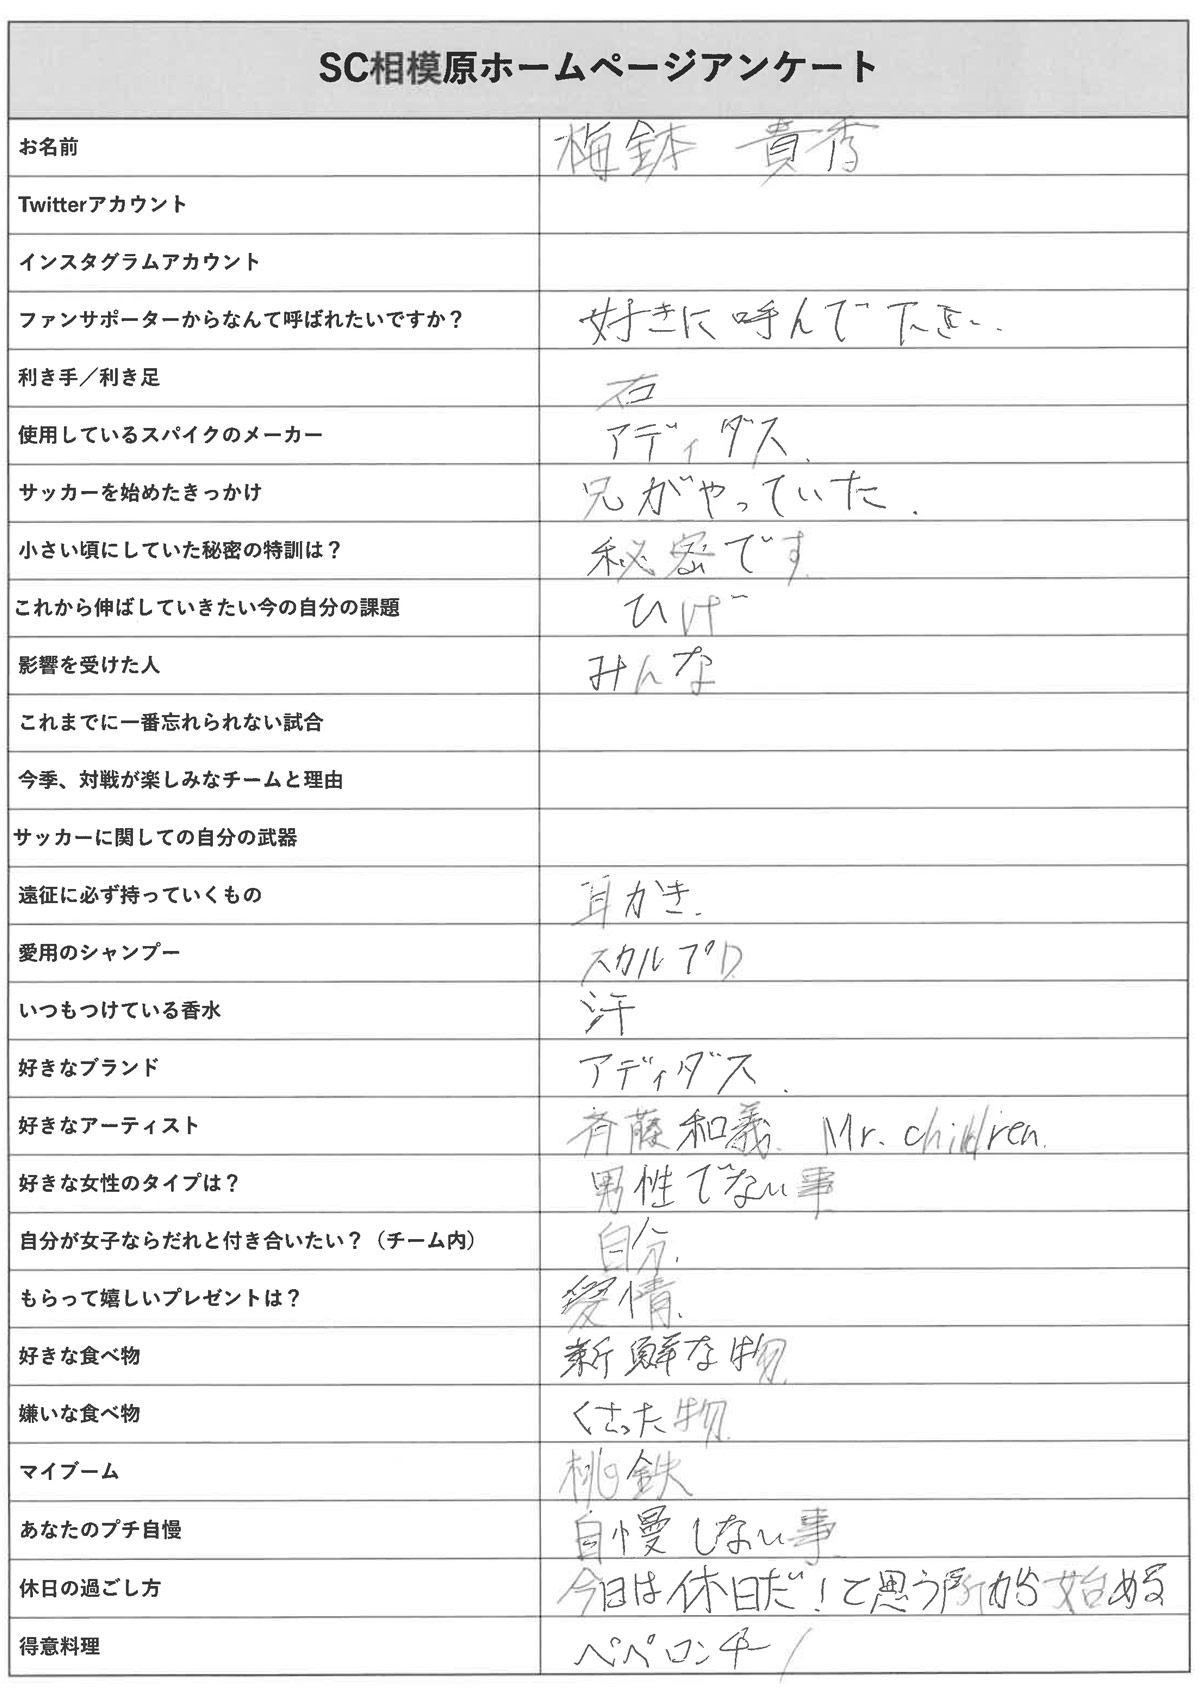 SC相模原ホームページアンケート
お名前 梅鉢 貴秀
Twitterアカウント
インスタグラムアカウント
ファンサポーターからなんて呼ばれたいですか？ 好きに呼んで下さい.
利き手／利き足 右
使用しているスパイクのメーカー アディダス.
サッカーを始めたきっかけ 兄がやっていた.
小さい頃にしていた秘密の特訓は？ 秘密です.
これから伸ばしていきたい今の自分の課題 ひげ
影響を受けた人 みんな
これまでに一番忘れられない試合
今季、対戦が楽しみなチームと理由
サッカーに関しての自分の武器
遠征に必ず持っていくもの 耳かき.
愛用のシャンプー スカルプD
いつもつけている香水 汗
好きなブランド アディダス.
好きなアーティスト 斉藤和義. Mr. children.
好きな女性のタイプは？ 男性でない事
自分が女子ならだれと付き合いたい？（チーム内） 自分.
もらって嬉しいプレゼントは？ 愛情.
好きな食べ物 新鮮な物.
嫌いな食べ物 くさった物.
マイブーム 桃鉄
あなたのプチ自慢 自慢しない事.
休日の過ごし方 今日は休日だ！と思う所から始める
得意料理 ペペロンチーノ